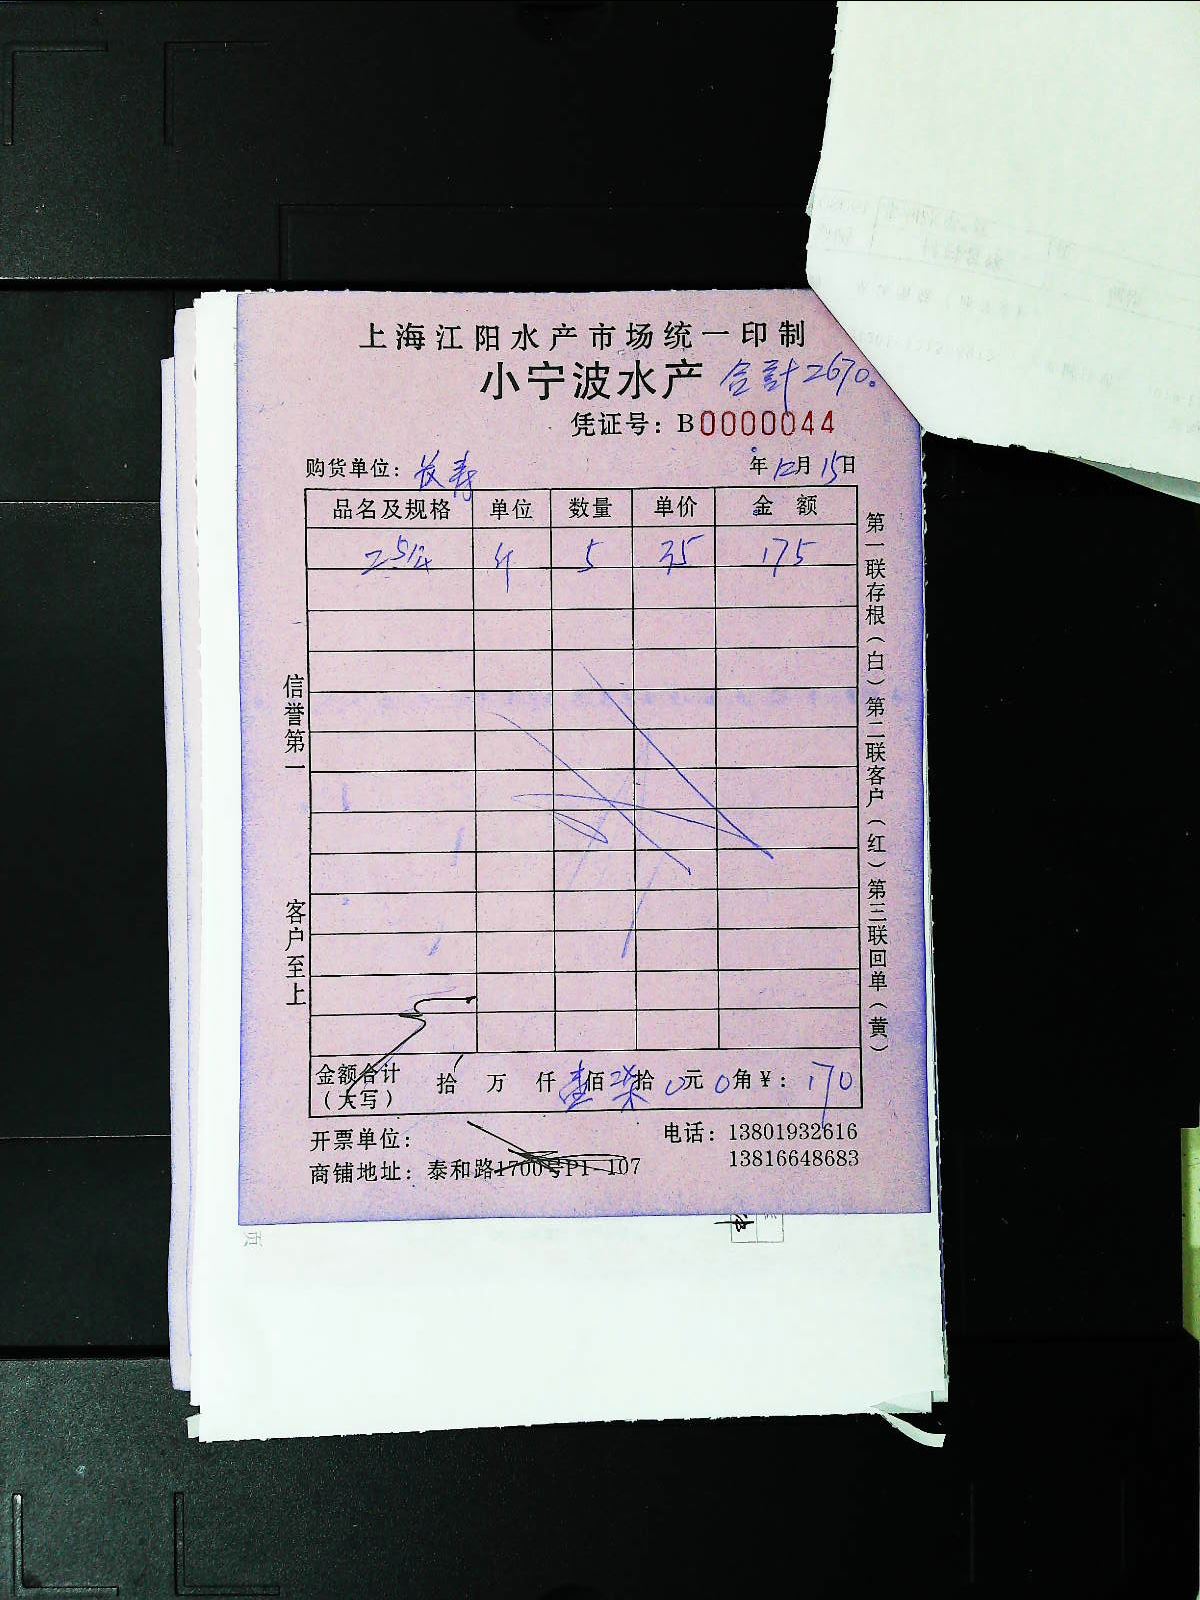 上海江阳水产市场统一印制
小宁波水产 合計2670.
凭证号：B0000044
购货单位：长寿 年12月15日
品名及规格 单位 数量 单价 金额
5 35 175
信誉第一
客户至上
第一联存根（白）第二联客户（红）第三联回单（黄）
金额合计（大写） 拾 万 仟 壹佰 柒拾 0元 0角 ¥：170
开票单位： 电话：13801932616
商铺地址：泰和路1700号P1-107 13816648683
页